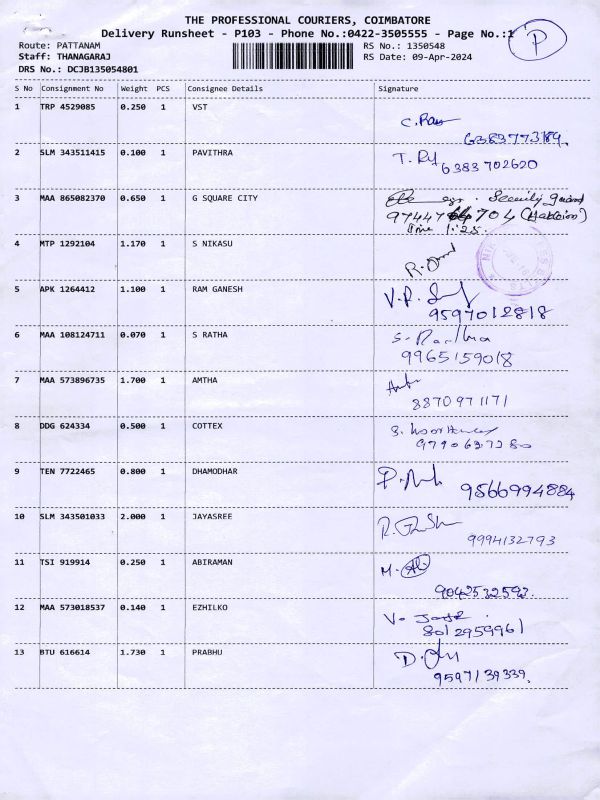 THE PROFESSIONAL COURIERS, COIMBATORE
Delivery Runsheet - P103 - Phone No.:0422-3505555 - Page No.:1
P
Route: PATTANAM RS No.: 1350548
Staff: THANAGARAJ RS Date: 09-Apr-2024
DRS No.: DCJB135054801
S No Consignment No Weight PCS Consignee Details Signature
1 TRP 4529085 0.250 1 VST
6383773189.
2 SLM 343511415 0.100 1 PAVITHRA
6383702620
3 MAA 865082370 0.650 1 G SQUARE CITY Security guard
4 MTP 1292104 1.170 1 S NIKASU
5 APK 1264412 1.100 1 RAM GANESH
9597012818
6 MAA 108124711 0.070 1 S RATHA
9965159018
7 MAA 573896735 1.700 1 AMTHA
8870971171
8 DDG 624334 0.500 1 COTTEX
9 TEN 7722465 0.800 1 DHAMODHAR
9566994884
10 SLM 343501033 2.000 1 JAYASREE
9994132793
11 TSI 919914 0.250 1 ABIRAMAN
9042532593.
12 MAA 573018537 0.140 1 EZHILKO
8012959961
13 BTU 616614 1.730 1 PRABHU
9597139339.